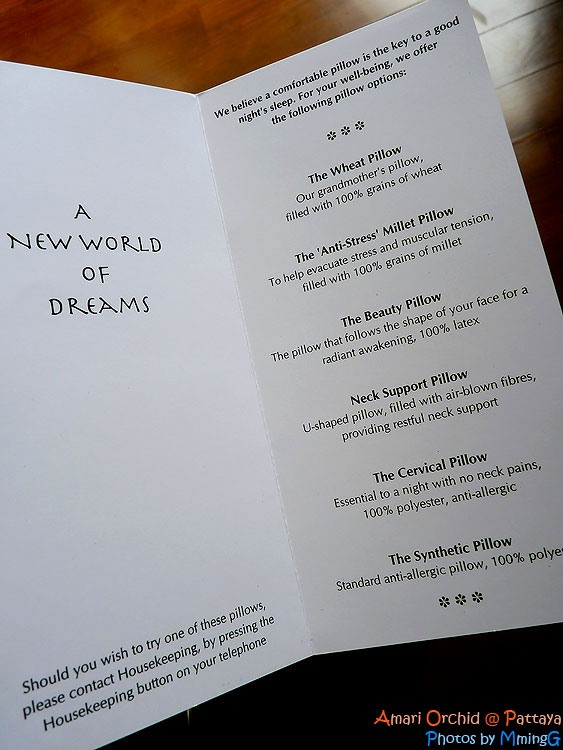 A
NEW WORLD
OF
DREAMS
Should you wish to try one of these pillows,
please contact Housekeeping, by pressing the
Housekeeping button on your telephone
We believe a comfortable pillow is the key to a good
night's sleep. For your well-being, we offer
the following pillow options:
The Wheat Pillow
Our grandmother's pillow,
filled with 100% grains of wheat
The 'Anti-Stress' Millet Pillow
To help evacuate stress and muscular tension,
filled with 100% grains of millet
The Beauty Pillow
The pillow that follows the shape of your face for a
radiant awakening, 100% latex
Neck Support Pillow
U-shaped pillow, filled with air-blown fibres,
providing restful neck support
The Cervical Pillow
Essential to a night with no neck pains,
100% polyester, anti-allergic
The Synthetic Pillow
Standard anti-allergic pillow, 100% polyes
Amari Orchid @ Pattaya
Photos by MmingG